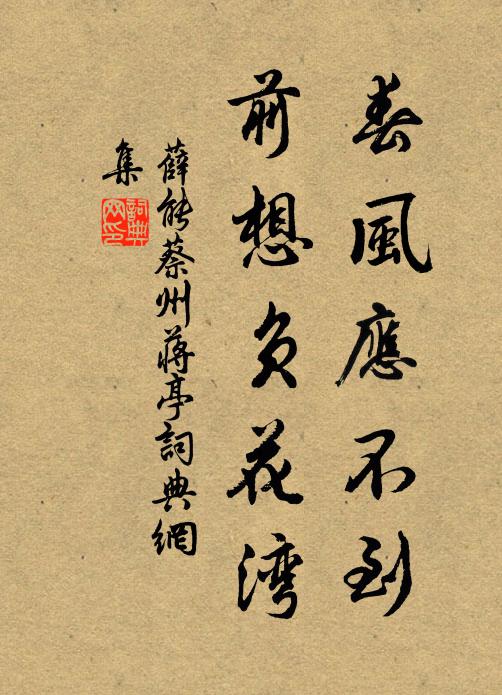 春風應不到
前想負花灣
薛能蔡州蔣亭詞典網
集
詞典網印